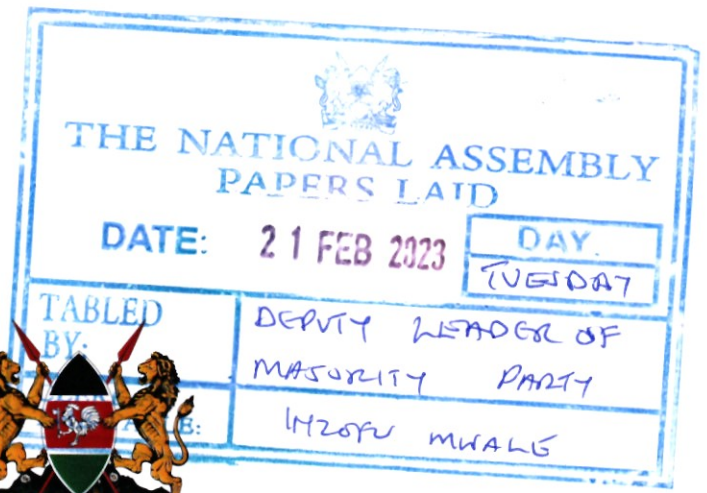 THE NATIONAL ASSEMBLY
PAPERS LAID
DATE: 21 FEB 2023
DAY.
TUESDAY
TABLED
BY:
DEPUTY LEADER OF
MAJORITY PARTY
E:
MWALE